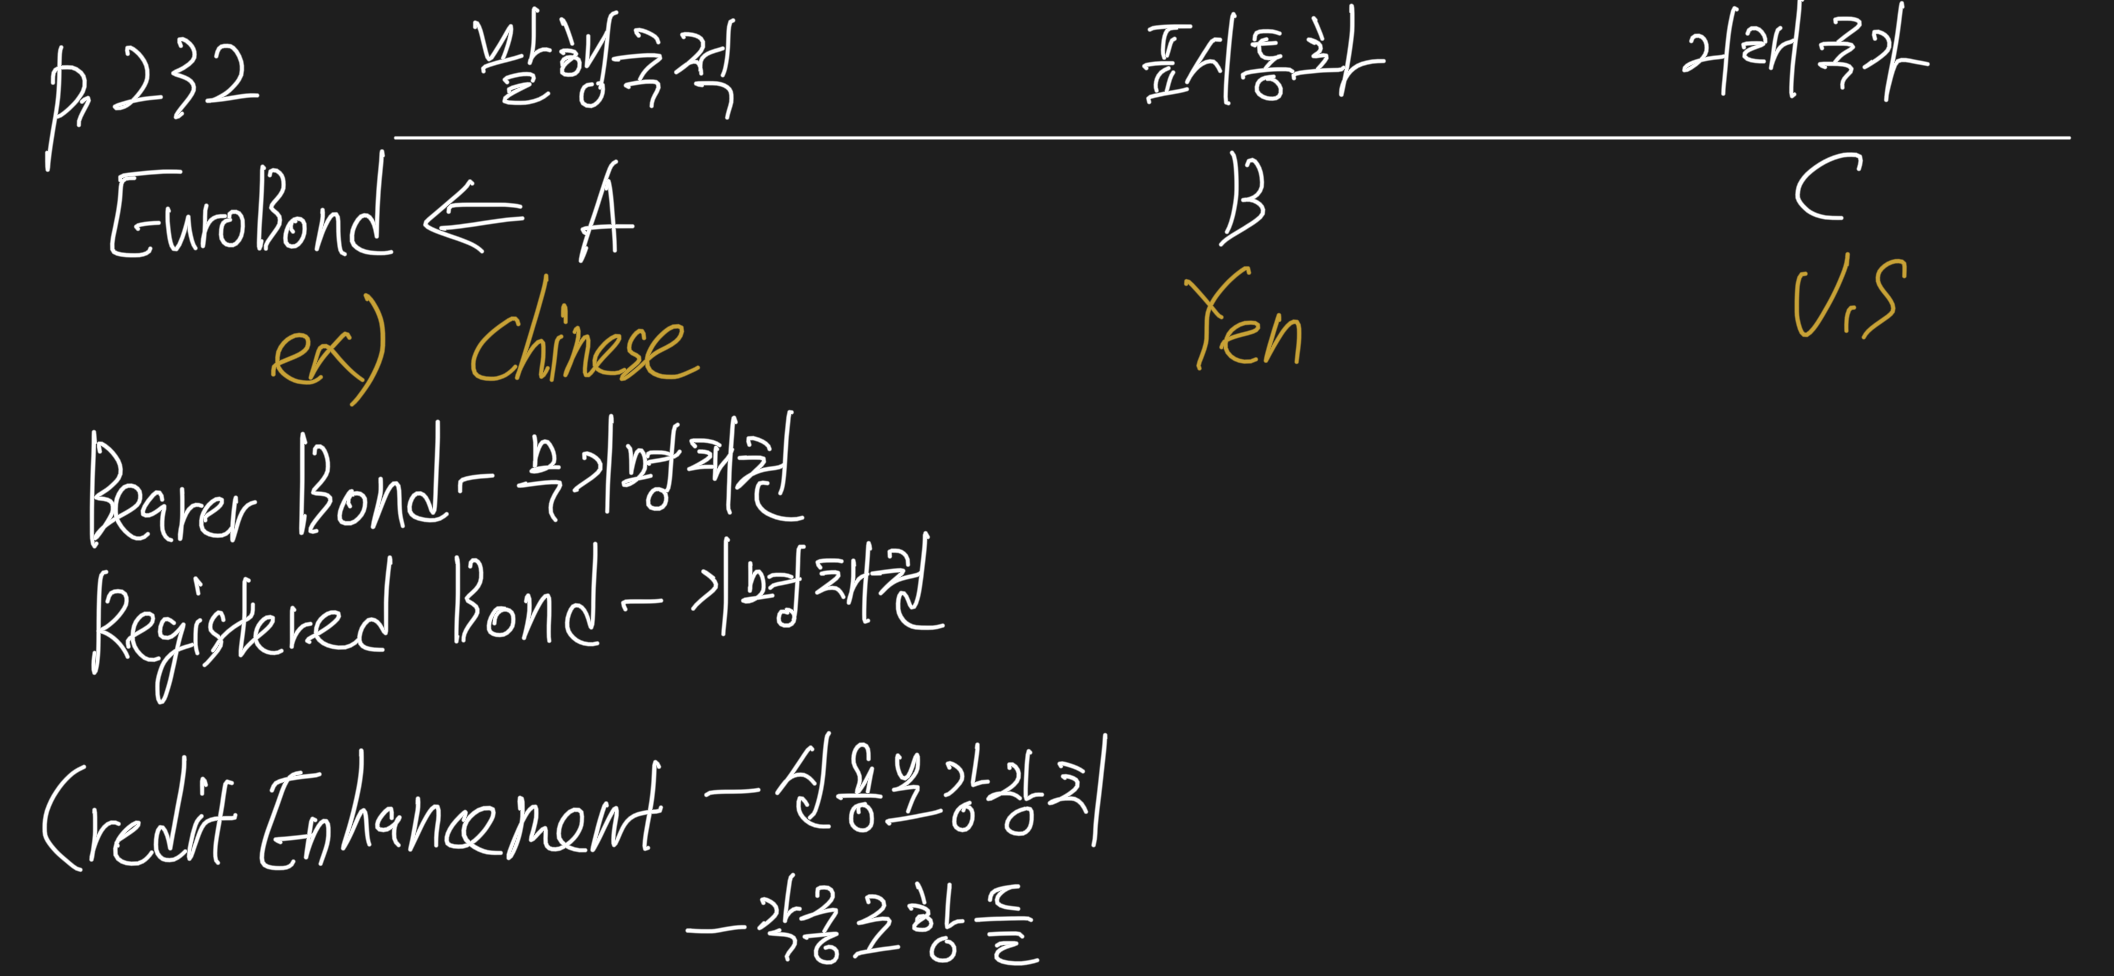 p.232 발행국적 표시통화 거래국가
EuroBond ⇐ A B C
ex) Chinese Yen U.S
Bearer Bond - 무기명채권
Registered Bond - 기명채권
Credit Enhancement - 신용보강장치
- 각종조항들